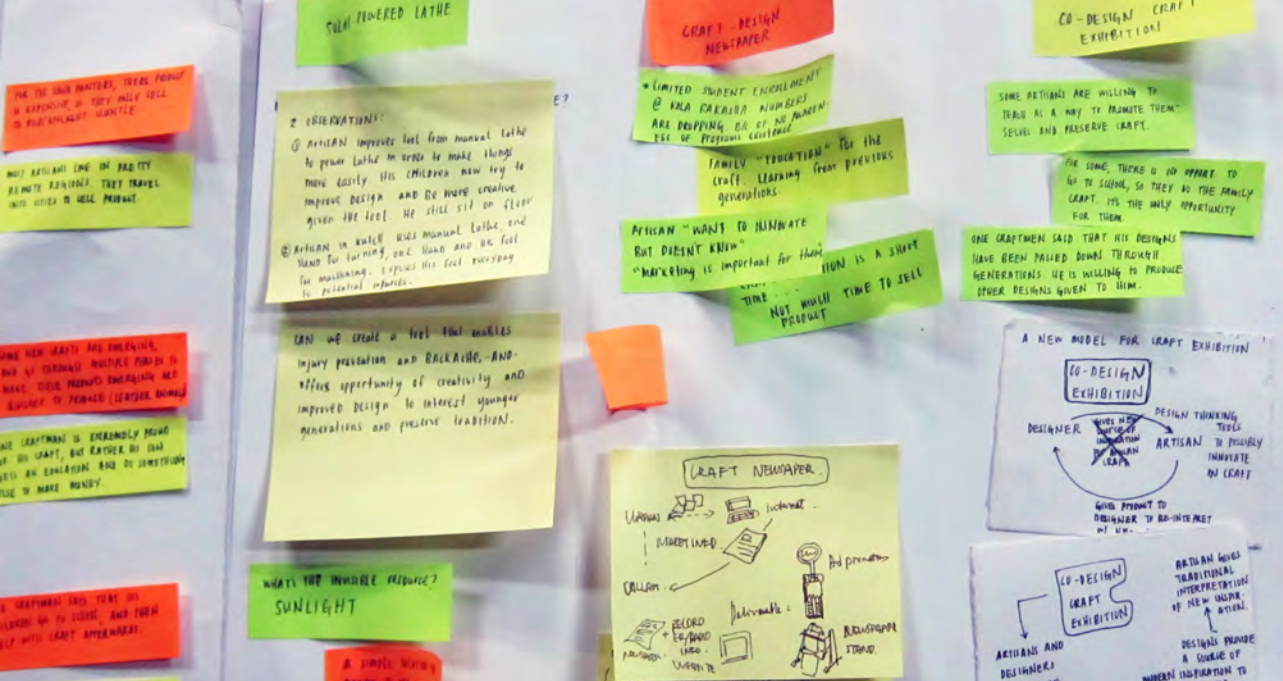 FOR THE
IS EXPENSIVE, SO THEY ONLY SELL
MOST ARTISANS LIVE IN PRETTY
REMOTE REGIONS. THEY TRAVEL
INTO CITIES TO SELL PRODUCT.
SOME NEW CRAFTS ARE EMERGING,
AND GO THROUGH MULTIPLE
MAKE. THESE PRODUCTS EMERGING ARE
TO PRODUCE (LEATHER
CRAFTMAN IS EXTREMELY PROUD
HIS CRAFT, BUT RATHER HIS SON
AN EDUCATION AND DO SOMETHING
TO MAKE MONEY.
CRAFTMAN SAID THAT HIS
GO TO SCHOOL, AND THEN
WITH CRAFT AFTERWARDS.
POWERED LATHE
E?
2 OBSERVATIONS:
① ARTISAN improves tool from manual lathe
to power lathe in order to make things
more easily. His children now try to
improve design and be more creative
given the tool. He still sit on floor
② ARTISAN in Kutch uses manual lathe, one
hand for turning, one hand and his foot
for machining. Exposes his feet everyday
to potential injuries.
CAN we create a tool that enables
injury prevention and BACKACHE, -AND-
offers opportunity of creativity and
improved design to interest younger
generations and preserve tradition.
WHAT'S THE INVISIBLE RESOURCE?
SUNLIGHT
A SIMPLE
CRAFT - DESIGN
NEWSPAPER
LIMITED STUDENT ENROLLMENT
@ KALA RAKSHA NUMBERS
ARE DROPPING. B/C OF NO
OF PROGRAMS EXISTENCE
FAMILY "EDUCATION" for the
craft. Learning from previous
generations.
ARTISAN "WANT TO INNOVATE
BUT DOESN'T KNOW"
"Marketing is important for them"
ION IS A SHORT
TIME . . .
NOT MUCH TIME TO SELL
PRODUCT
CRAFT NEWSPAPER.
Internet.
Ad
Deliverable:
RECORD
INFO.
WEBSITE
NEWSPAPER
STAND.
CO-DESIGN CRAFT
EXHIBITION
SOME ARTISANS ARE WILLING TO
TEACH AS A WAY TO PROMOTE THEM-
SELVES AND PRESERVE CRAFT.
FOR SOME, THERE IS NO OPPORT. TO
GO TO SCHOOL, SO THEY DO THE FAMILY
CRAFT. IT'S THE ONLY OPPORTUNITY
FOR THEM.
ONE CRAFTMEN SAID THAT HIS DESIGNS
HAVE BEEN PASSED DOWN THROUGH
GENERATIONS. HE IS WILLING TO PRODUCE
OTHER DESIGNS GIVEN TO HIM.
A NEW MODEL FOR CRAFT EXHIBITION
CO-DESIGN
EXHIBITION
DESIGNER
GIVES NEW
SOURCE OF
INSPIRATION
CRAFT
ARTISAN
DESIGN THINKING
TOOLS
TO POSSIBLY
INNOVATE
ON CRAFT
GIVES PRODUCT TO
DESIGNER TO RE-INTERPRET
CO-DESIGN
CRAFT
EXHIBITION
ARTISANS AND
DESIGNERS
ARTISAN GIVES
TRADITIONAL
INTERPRETATION
OF NEW INSPIR-
ATION.
DESIGNS PROVIDE
A SOURCE OF
MODERN INSPIRATION TO